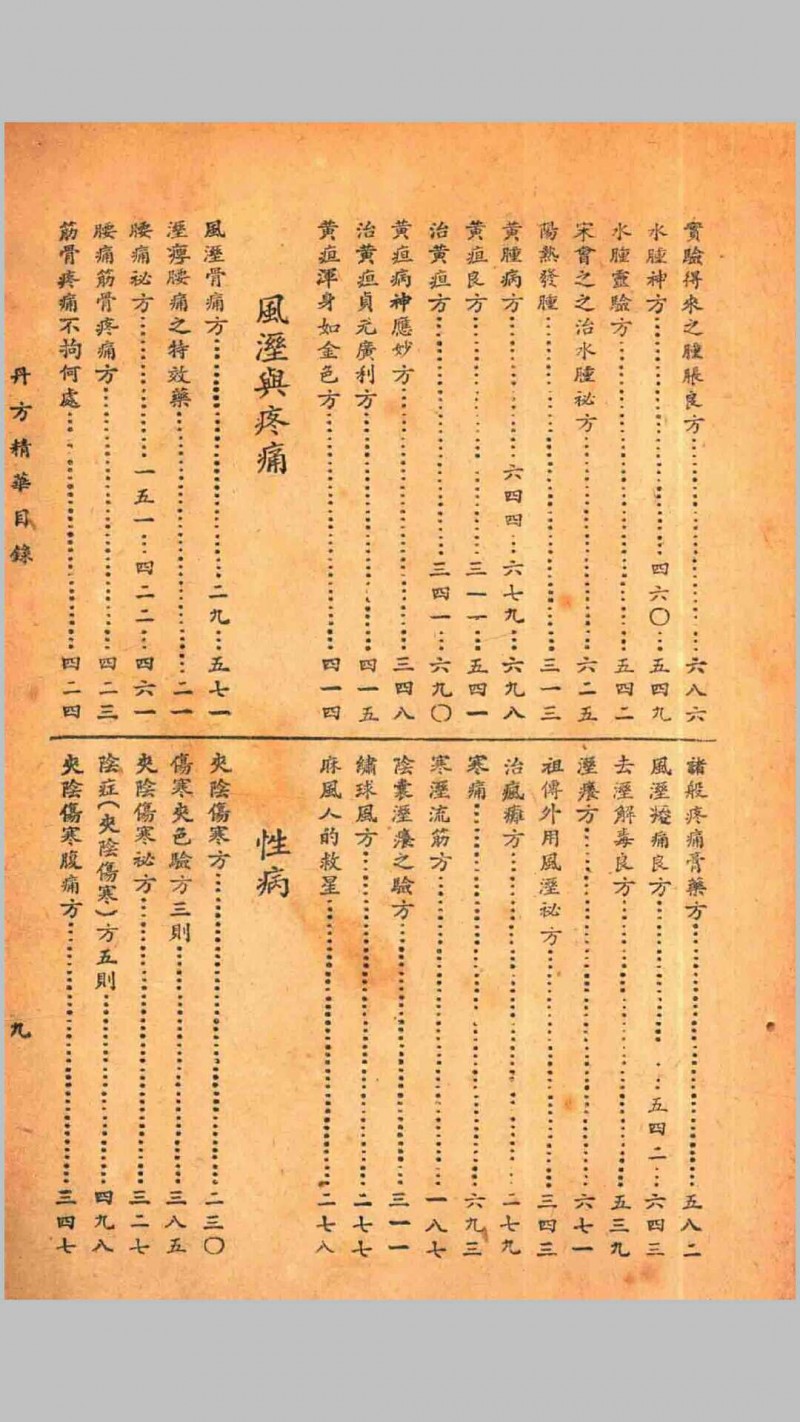 實驗得來之腫脹良方……六八六
水腫神方……四六〇…五四九
水腫靈驗方……五四二
宋會之之治水腫祕方……六二五
陽熱發腫……三一三
黃腫病方……六四四…六七九…六九八
黃疸良方……三一一…五四一
治黃疸方……三四一…六九〇
黃疸病神應妙方……三四八
治黃疸貞元廣利方……四一五
黃疸渾身如金色方……四一四
風溼與疼痛
風溼骨痛方……二九…五七一
溼痺腰痛之特效藥……二一
腰痛祕方……一五一…四二二…四六一
腰痛筋骨疼痛方……四二三
筋骨疼痛不拘何處……四二四
諸般疼痛膏藥方……五八二
風溼痠痛良方……五四二…六四三
去溼解毒良方……五三九
溼瘡方……六七一
祖傳外用風溼祕方……三四三
治瘋癱方……二七九
寒痛……六九三
寒溼流筋方……一八七
陰囊溼癢之驗方……三一一
繡球風方……二七七
麻風人的救星……二七八
性病
夾陰傷寒方……二三〇
傷寒夾色驗方三則……三八五
夾陰傷寒祕方……三二七
陰症(夾陰傷寒)方五則……四九八
夾陰傷寒腹痛方……三四七
丹方精華目錄
九